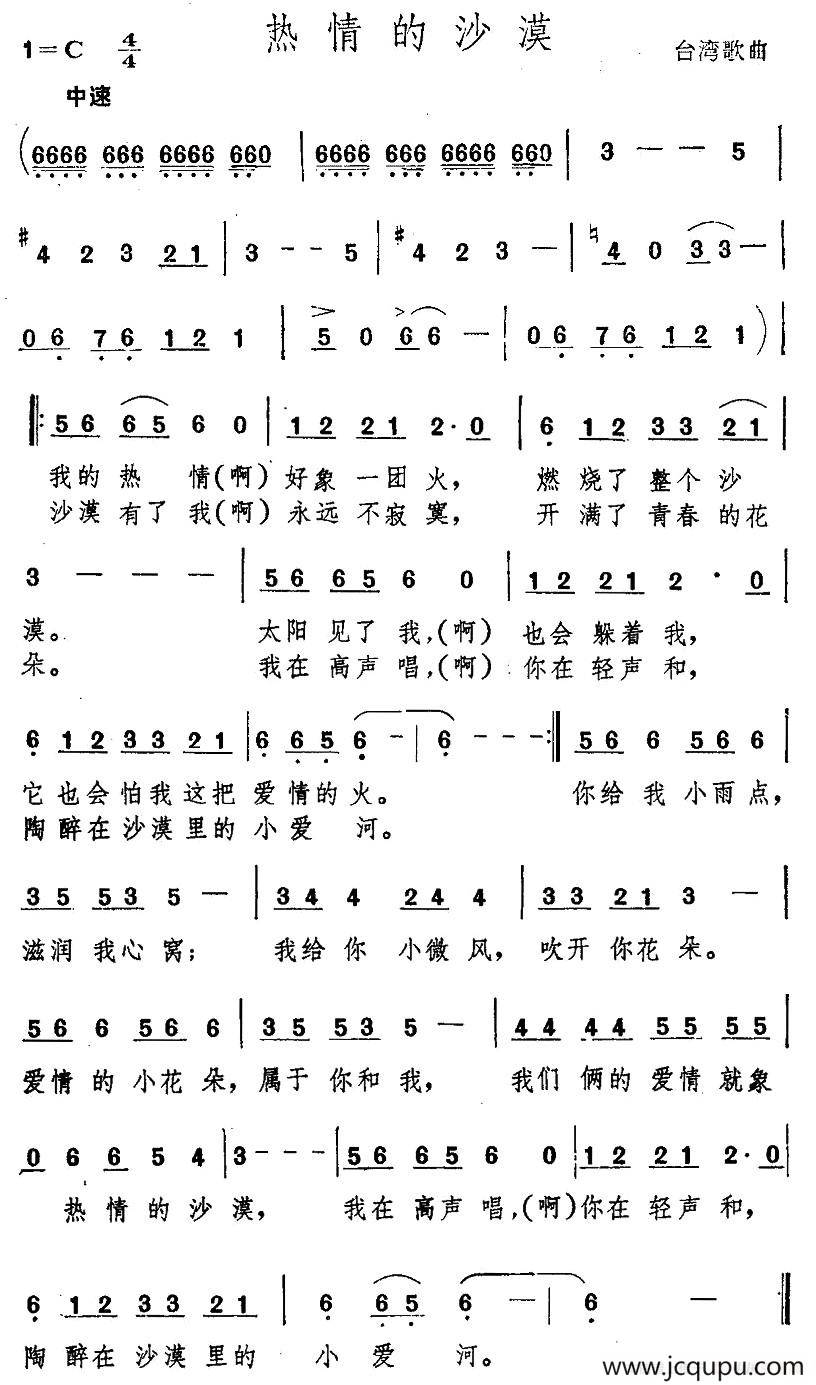 热情的沙漠
1=C 4/4
台湾歌曲
中速
(6666 666 6666 660 | 6666 666 6666 660 | 3 — — 5
#4 2 3 21 | 3 - - 5 | #4 2 3 — | ♮4 0 33 — |
06 76 12 1 | 5 0 66 — | 06 76 12 1 ) |
‖: 56 65 6 0 | 12 21 2·0 | 6 12 33 21 |
我的热 情(啊)好象一团火， 燃烧了整个沙
沙漠有了我(啊)永远不寂寞， 开满了青春的花
3 — — — | 56 65 6 0 | 12 21 2 · 0 |
漠。 太阳见了我，(啊) 也会躲着我，
朵。 我在高声唱，(啊) 你在轻声和，
6 12 33 21 | 6 65 6 - | 6 - - - :‖ 56 6 56 6 |
它也会怕我这把爱情的火。 你给我小雨点，
陶醉在沙漠里的小爱 河。
35 53 5 — | 34 4 24 4 | 33 21 3 — |
滋润我心窝； 我给你 小微风， 吹开你花朵。
56 6 56 6 | 35 53 5 — | 44 44 55 55 |
爱情的小花朵，属于你和我， 我们俩的爱情就象
0 6 6 5 4 | 3 - - - | 56 65 6 0 | 12 21 2·0 |
热情的沙漠， 我在高声唱，(啊)你在轻声和，
6 12 33 21 | 6 65 6 — | 6 — — — ‖
陶醉在沙漠里的 小爱 河。
www.jcqupu.com